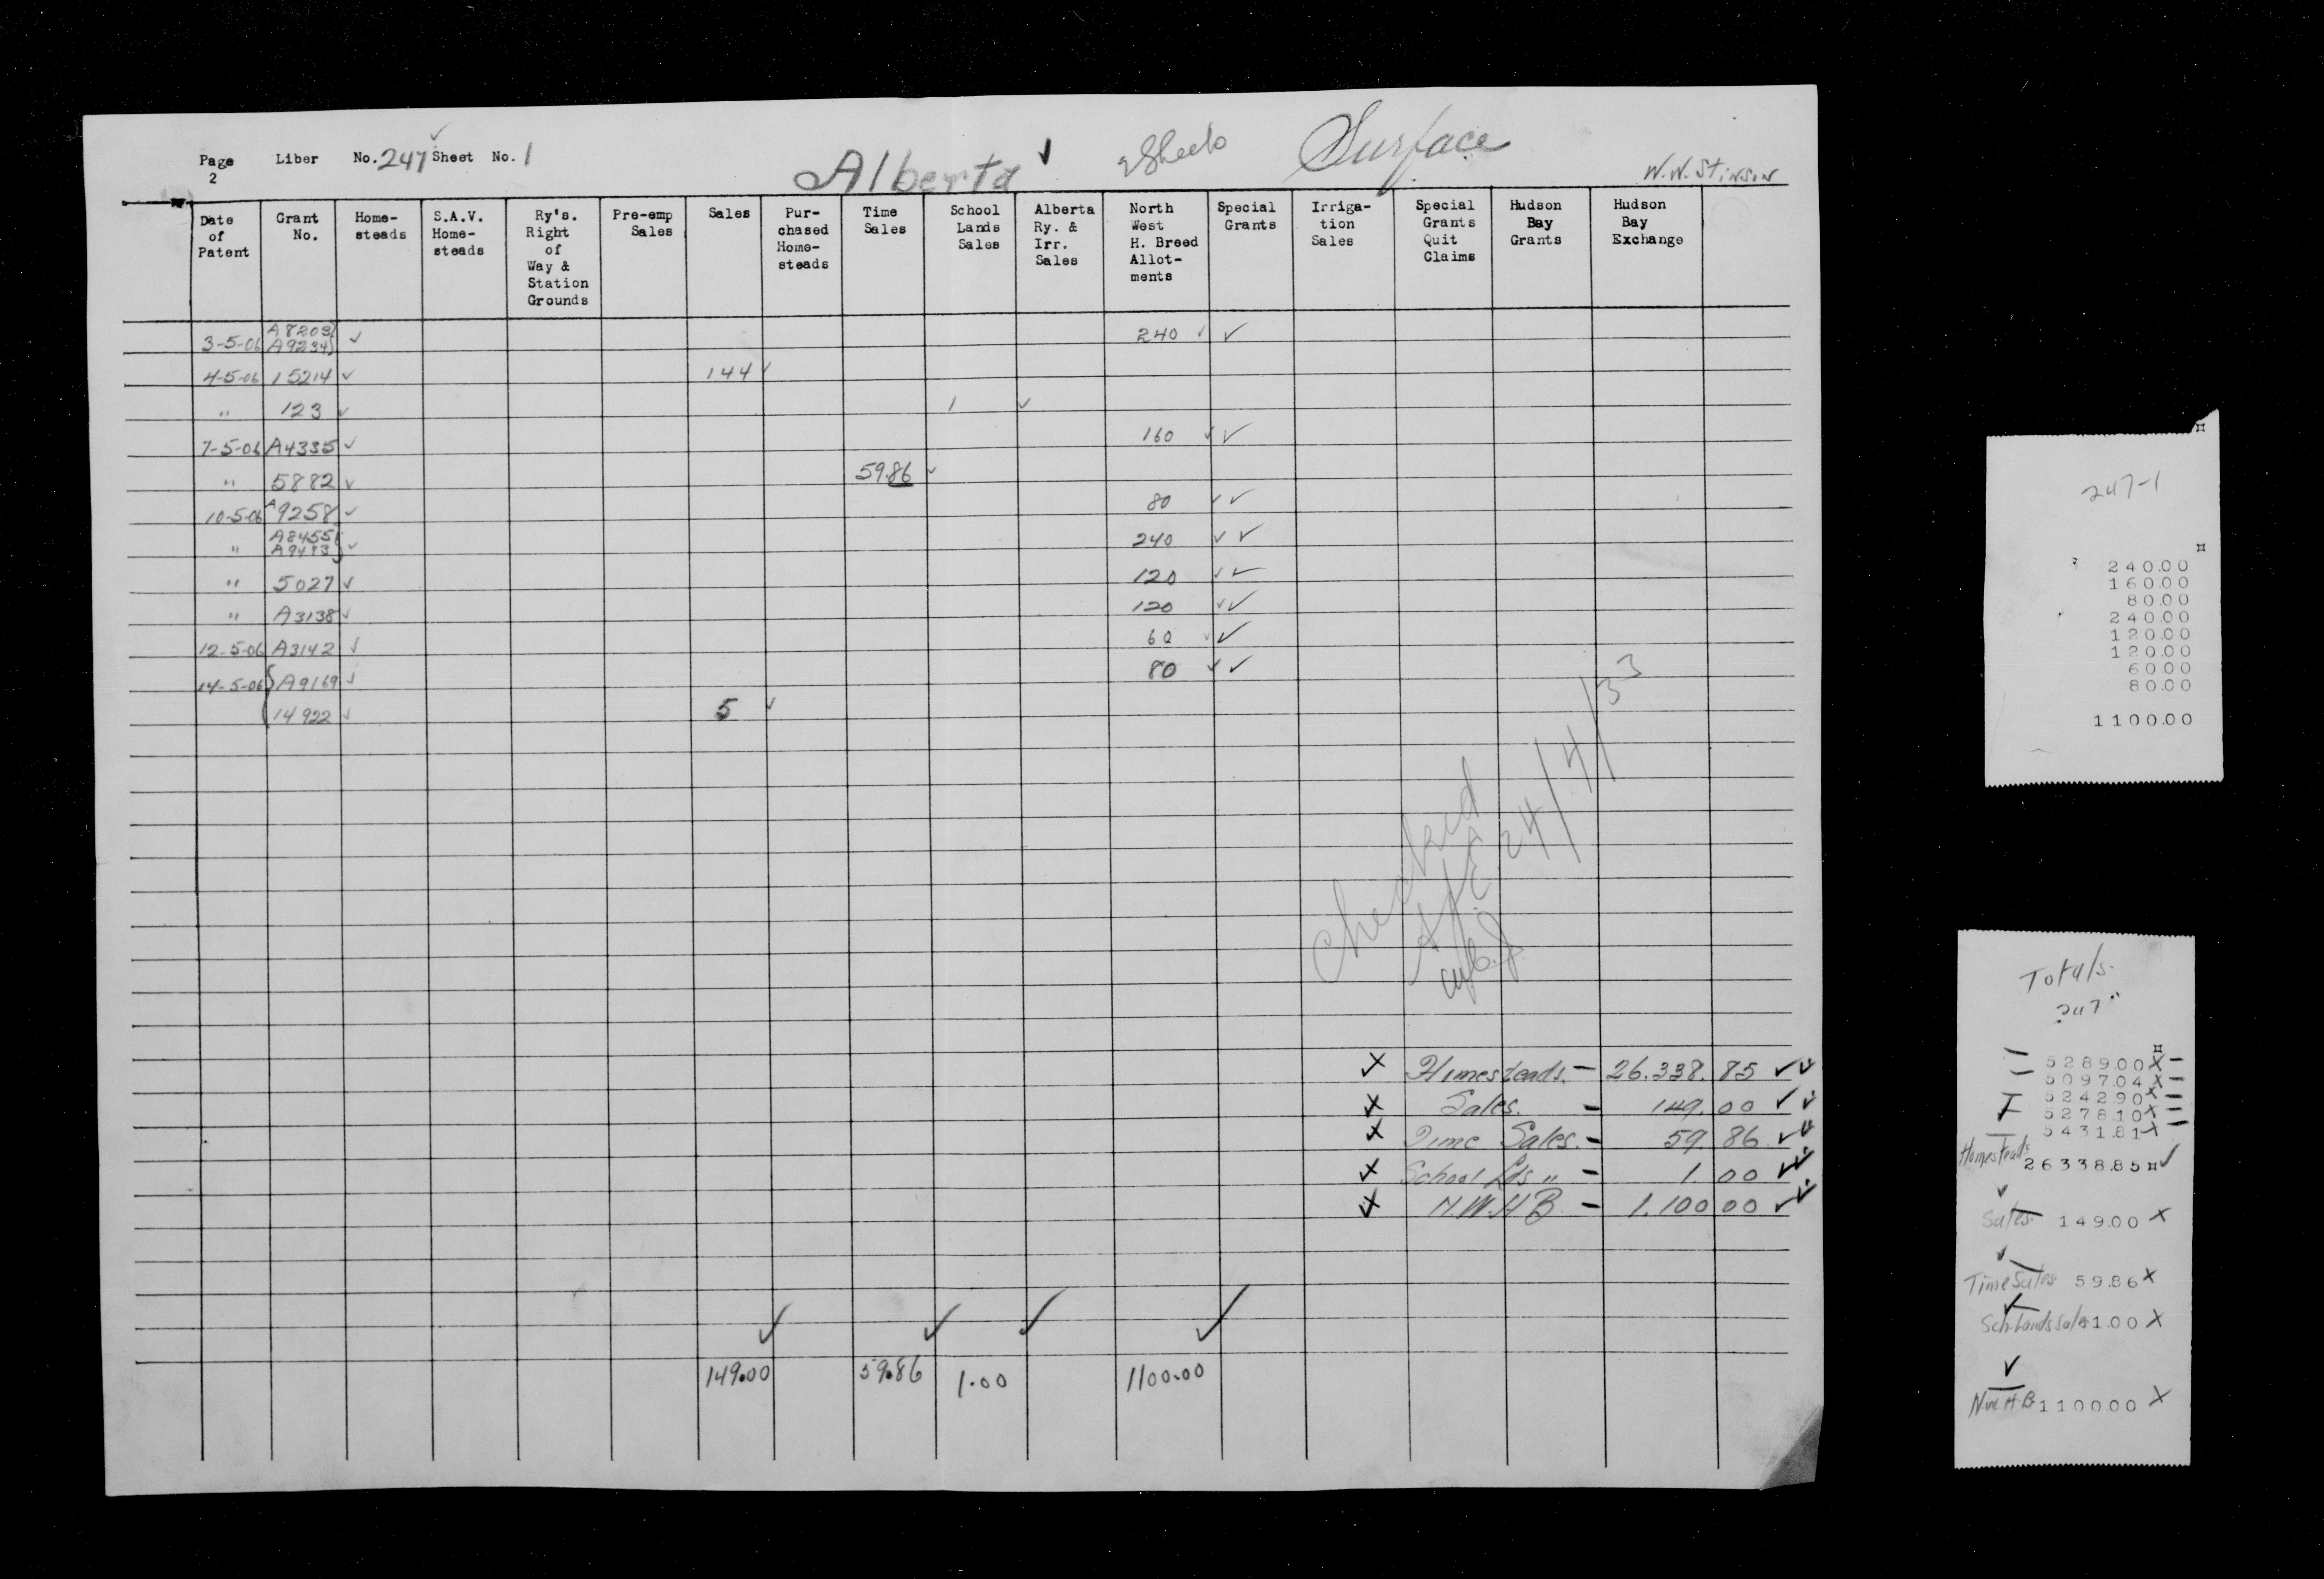 Page 2 Liber No. 247 Sheet No. 1
Alberta
2 Sheets
Surface
W.W. Stinson
Date of Patent
Grant No.
Home-steads
S.A.V. Home-steads
Ry's. Right of Way & Station Grounds
Pre-emp Sales
Sales
Pur-chased Home-steads
Time Sales
School Lands Sales
Alberta Ry. & Irr. Sales
North West H. Breed Allot-ments
Special Grants
Irriga-tion Sales
Special Grants Quit Claims
Hudson Bay Grants
Hudson Bay Exchange
3-5-06 A8203 A9234 240
4-5-06 15214 144
" 123 1
7-5-06 A4335 160
" 5882 59.86
10-5-06 A9258 80
" A8455 A9493 240
" 5027 120
" A3138 120
12-5-06 A3142 60
14-5-06 A9169 80
14922 5
Checked
24/4/33
Homesteads. - 26.338.85
Sales. - 149.00
Time Sales. - 59.86
School Lds " - 1.00
N.W.H.B - 1.100 00
149.00 59.86 1.00 1100.00
247-1
240.00
160.00
80.00
240.00
120.00
120.00
60.00
80.00
1100.00
Totals.
247"
5289.00 X
5097.04 X
5242.90 X
5278.10 X
5431.81 X
Homesteads 26338.85
Sales. 149.00 X
Time Sales 59.86 X
Sch. Lands Sales 1.00 X
N.W.H.B 1100.00 X